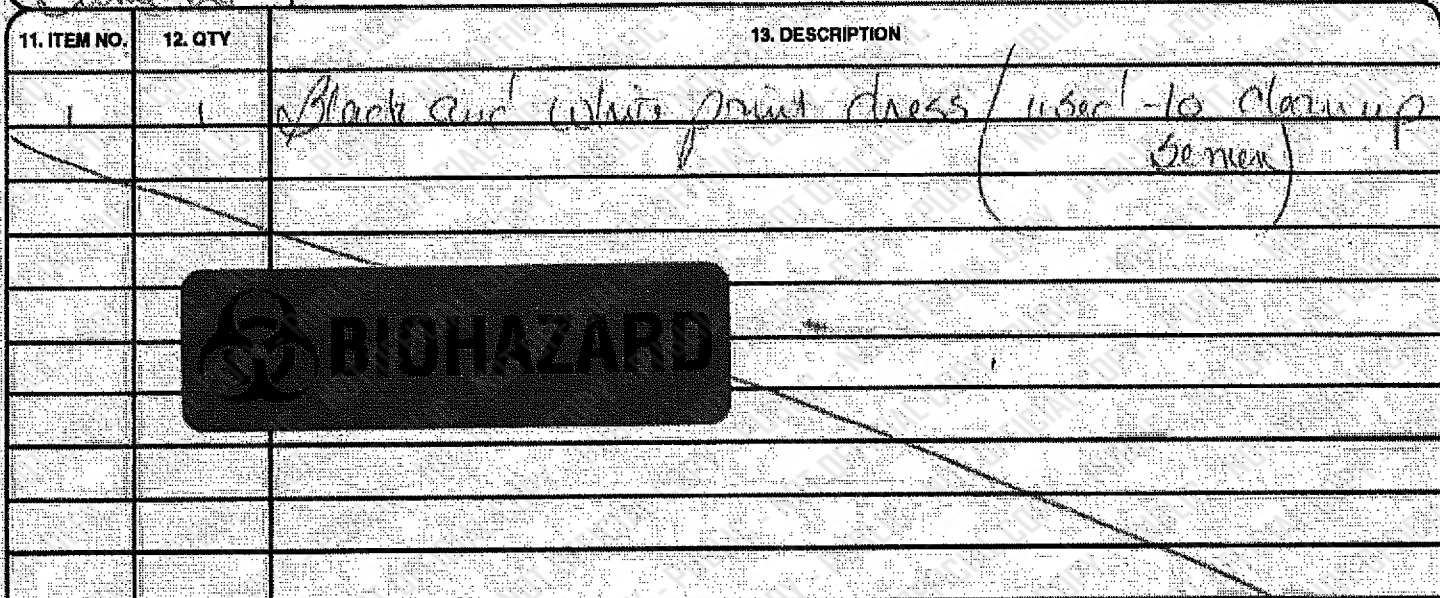 11. ITEM NO. 12. QTY 13. DESCRIPTION
1 1 Black and white print dress (used to clean up
semen)
BIOHAZARD